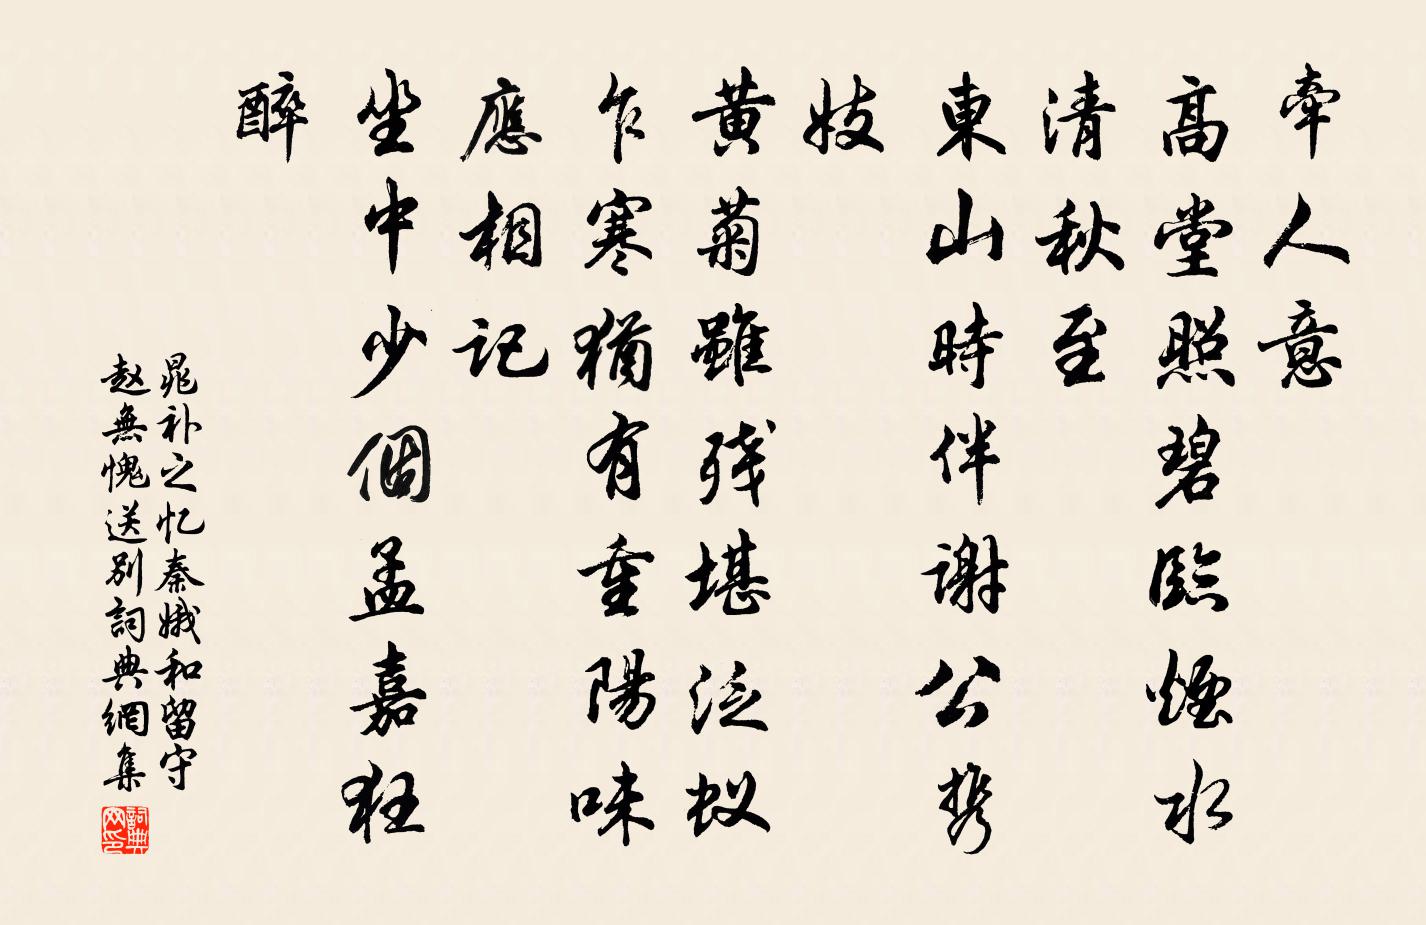 牵人意
高堂照碧臨煙水
清秋至
東山時伴謝公携
妓
黄菊雖残堪泛蚁
乍寒猶有重陽味
應相記
坐中少個孟嘉狂
醉
晁补之忆秦娥和留守
赵無愧送别詞典網集
詞典
网印